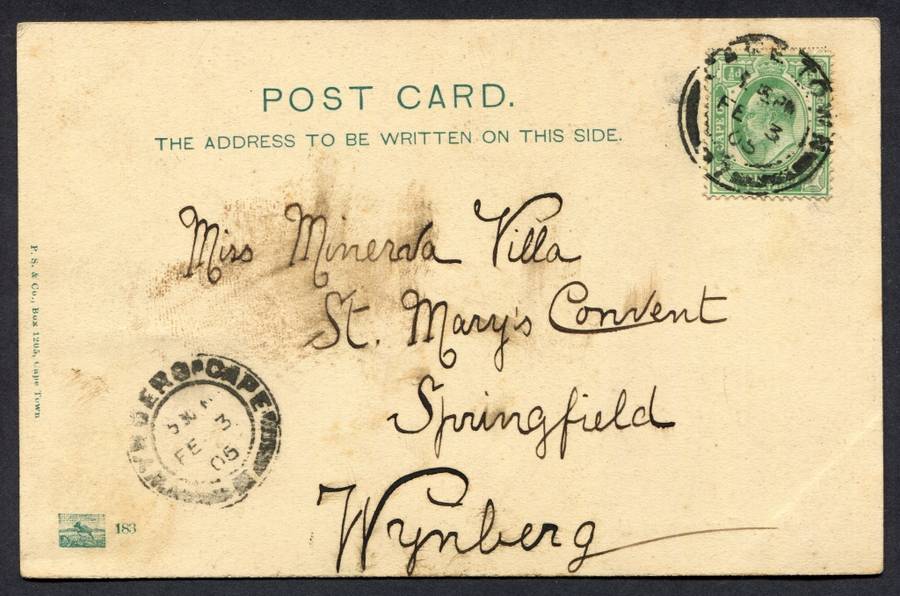 POST CARD.
THE ADDRESS TO BE WRITTEN ON THIS SIDE.
TOWN
FE 3
05
½d
CAPE
Miss Minerva Villa
St. Mary's Convent
Springfield
Wynberg
P. S. & Co., Box 1205, Cape Town
CAPE
FE 3
05
183